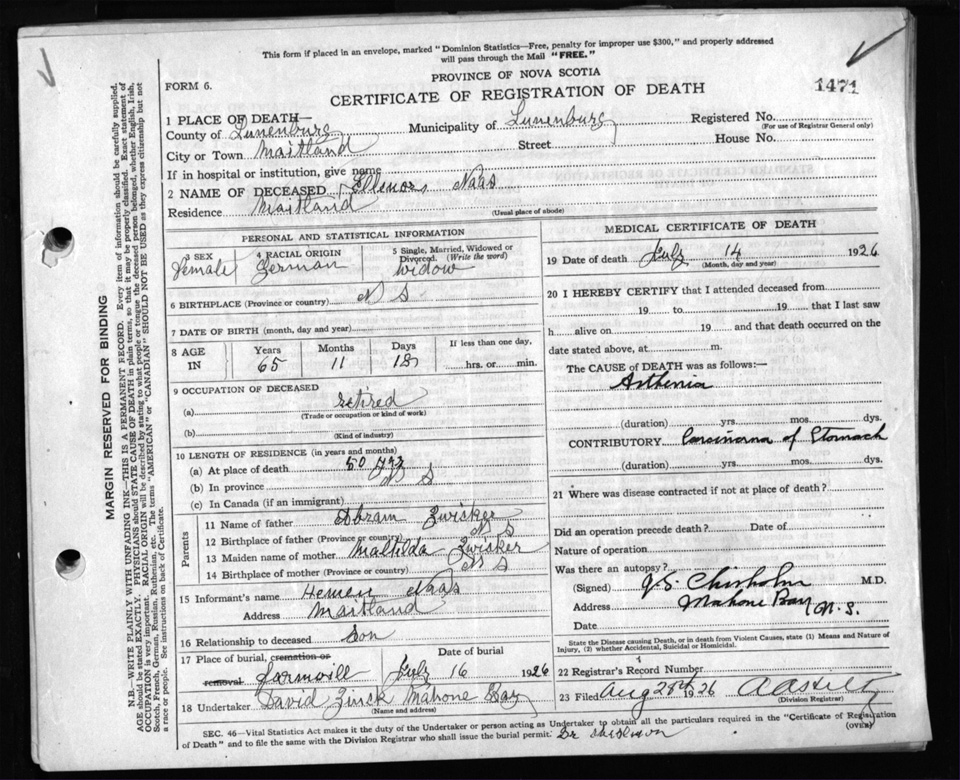 This form if placed in an envelope, marked "Dominion Statistics—Free, penalty for improper use $300," and properly addressed
will pass through the Mail "FREE."
FORM 6.
PROVINCE OF NOVA SCOTIA
CERTIFICATE OF REGISTRATION OF DEATH
1471
1 PLACE OF DEATH—
County of Lunenburg Municipality of Lunenburg Registered No.
(For use of Registrar General only)
City or Town Maitland Street House No.
If in hospital or institution, give name
2 NAME OF DECEASED Ellenor Naas
Residence Maitland
(Usual place of abode)
PERSONAL AND STATISTICAL INFORMATION
3 SEX 4 RACIAL ORIGIN 5 Single, Married, Widowed or Divorced. (Write the word)
Female German widow
6 BIRTHPLACE (Province or country) N S
7 DATE OF BIRTH (month, day and year)
8 AGE IN Years Months Days If less than one day,
65 11 hrs. or min.
9 OCCUPATION OF DECEASED
(a) retired
(Trade or occupation or kind of work)
(b)
(Kind of industry)
10 LENGTH OF RESIDENCE (in years and months)
(a) At place of death 50 yrs
(b) In province N S
(c) In Canada (if an immigrant)
Parents
11 Name of father Abram Zwicker
12 Birthplace of father (Province or country) N S
13 Maiden name of mother Matilda Zwicker
14 Birthplace of mother (Province or country) N S
15 Informant's name Hemen Naas
Address Maitland
16 Relationship to deceased Son
17 Place of burial, cremation or removal Date of burial
July 16 1926
18 Undertaker David Zinck Mahone Bay
(Name and address)
MEDICAL CERTIFICATE OF DEATH
19 Date of death July 14 1926
(Month, day and year)
20 I HEREBY CERTIFY that I attended deceased from
19 to 19 that I last saw
h alive on 19 and that death occurred on the
date stated above, at m.
The CAUSE OF DEATH was as follows:—
Asthenia
(duration) yrs. mos. dys.
CONTRIBUTORY Carcinoma of Stomach
(duration) yrs. mos. dys.
21 Where was disease contracted if not at place of death?
Did an operation precede death? Date of
Nature of operation
Was there an autopsy?
(Signed) J.S. Chisholm M.D.
Address Mahone Bay N.S.
Date
State the Disease causing Death, or in death from Violent Causes, state (1) Means and Nature of
Injury, (2) whether Accidental, Suicidal or Homicidal.
22 Registrar's Record Number
23 Filed Aug 28th 1926
(Division Registrar)
SEC. 46—Vital Statistics Act makes it the duty of the Undertaker or person acting as Undertaker to obtain all the particulars required in the "Certificate of Registration
of Death" and to file the same with the Division Registrar who shall issue the burial permit. Dr
(OVER)
MARGIN RESERVED FOR BINDING
N.B.—WRITE PLAINLY WITH UNFADING INK—THIS IS A PERMANENT RECORD. Every item of information should be carefully supplied.
AGE should be stated EXACTLY. PHYSICIANS should STATE CAUSE OF DEATH in plain terms, so that it may be properly classified. Exact statement of
OCCUPATION is very important. RACIAL ORIGIN will be described by stating to what people or tongue the deceased person belonged, whether English, Irish,
Scotch, French, German, Russian, Ruthenian, etc. The terms "AMERICAN" or "CANADIAN" SHOULD NOT BE USED as they express citizenship but not
a race or people. See instructions on back of Certificate.